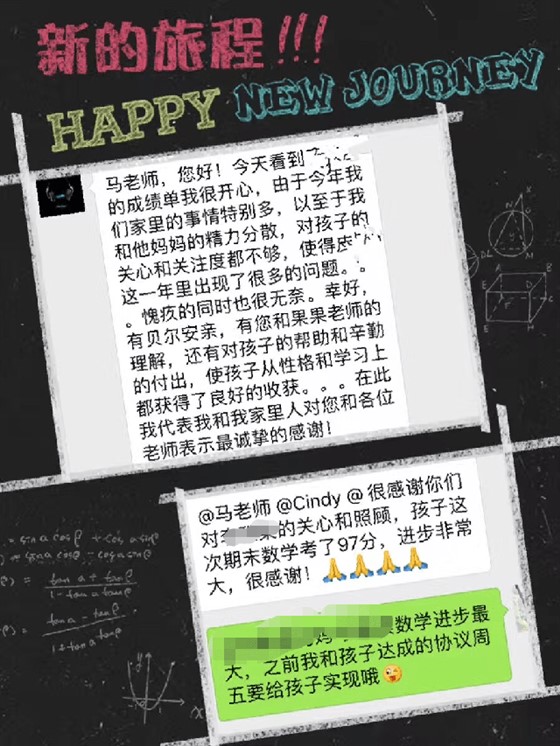 新的旅程!!!
HAPPY NEW JOURNEY
马老师，您好！今天看到
的成绩单我很开心，由于今年我
们家里的事情特别多，以至于我
和他妈妈的精力分散，对孩子的
关心和关注度都不够，使得
这一年里出现了很多的问题。。
。愧疚的同时也很无奈。幸好，
有贝尔安亲，有您和果果老师的
理解，还有对孩子的帮助和辛勤
的付出，使孩子从性格和学习上
都获得了良好的收获。。。在此
我代表我和我家里人对您和各位
老师表示最诚挚的感谢！
@马老师 @Cindy @ 很感谢你们
对 的关心和照顾，孩子这
次期末数学考了97分，进步非常
大，很感谢！🙏🙏🙏🙏
数学进步最
大，之前我和孩子达成的协议周
五要给孩子实现哦😜
= sin α cos β + cos α sin β
tan α + tan β
1 - tan α tan β
tan α - tan β
1 + tan α tan β